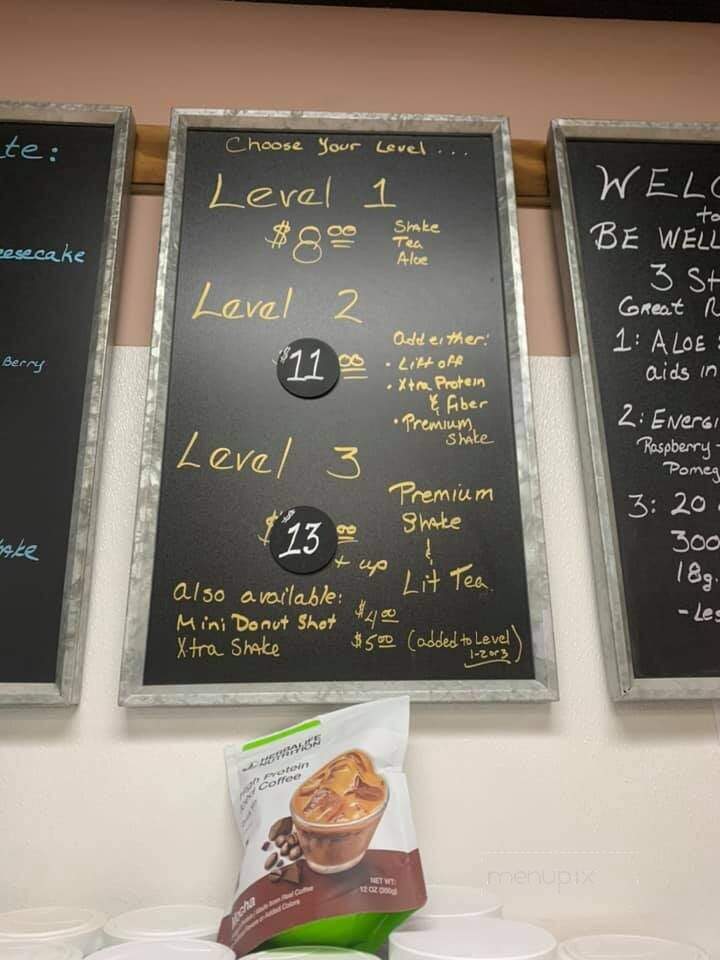 te:
Berry
Choose Your Level ...
Level 1
$8.00
Shake
Tea
Aloe
Level 2
$11 00
Add either:
• Lift off
• Xtra Protein
& Fiber
• Premium
Shake
Level 3
$13 00
+ up
Premium
Shake
&
Lit Tea
also available:
Mini Donut Shot $4 00
Xtra Shake $5 00 (added to Level
1-2 or 3)
to
BE WELL
3
Great
1: ALOE
aids in
2:
Raspberry
3: 20
300
18g.
HERBALIFE
NUTRITION
High Protein
Iced Coffee
Mocha
NET WT:
12 OZ
menupix